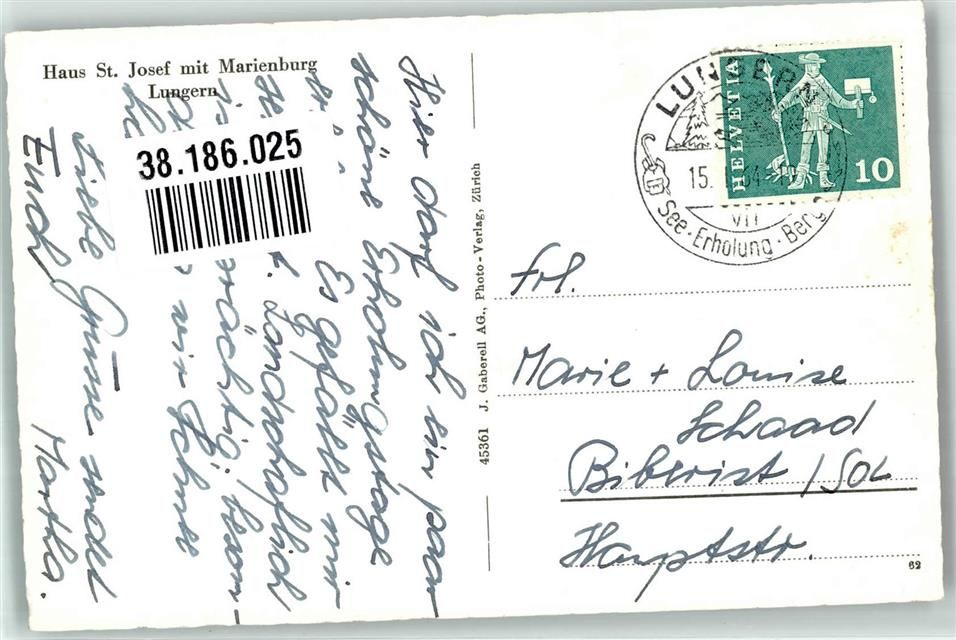 Haus St. Josef mit Marienburg
Lungern
38.186.025
Hier darf ich ein paar
schöne Erholungstage
Es gefällt mir
landschaftlich
wir Schnee
Liebe Grüsse sendet
Euch Martha.
45361 J. Gaberell AG., Photo-Verlag, Zürich
LUNGERN
15.
VII
See · Erholung · Berg
HELVETIA
10
Frl.
Marie + Louise
Schaad
Biberist / Sol
Hauptstr.
62